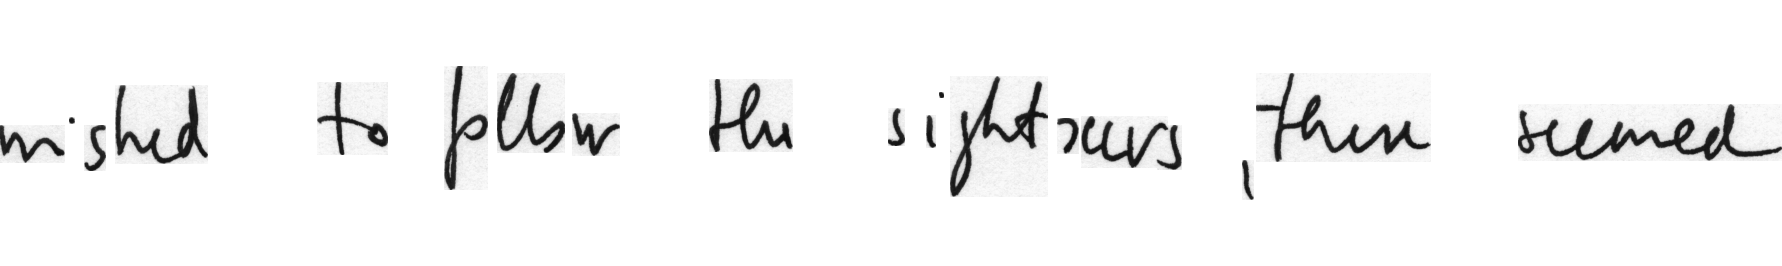 wished to follow the sightseers , there seemed